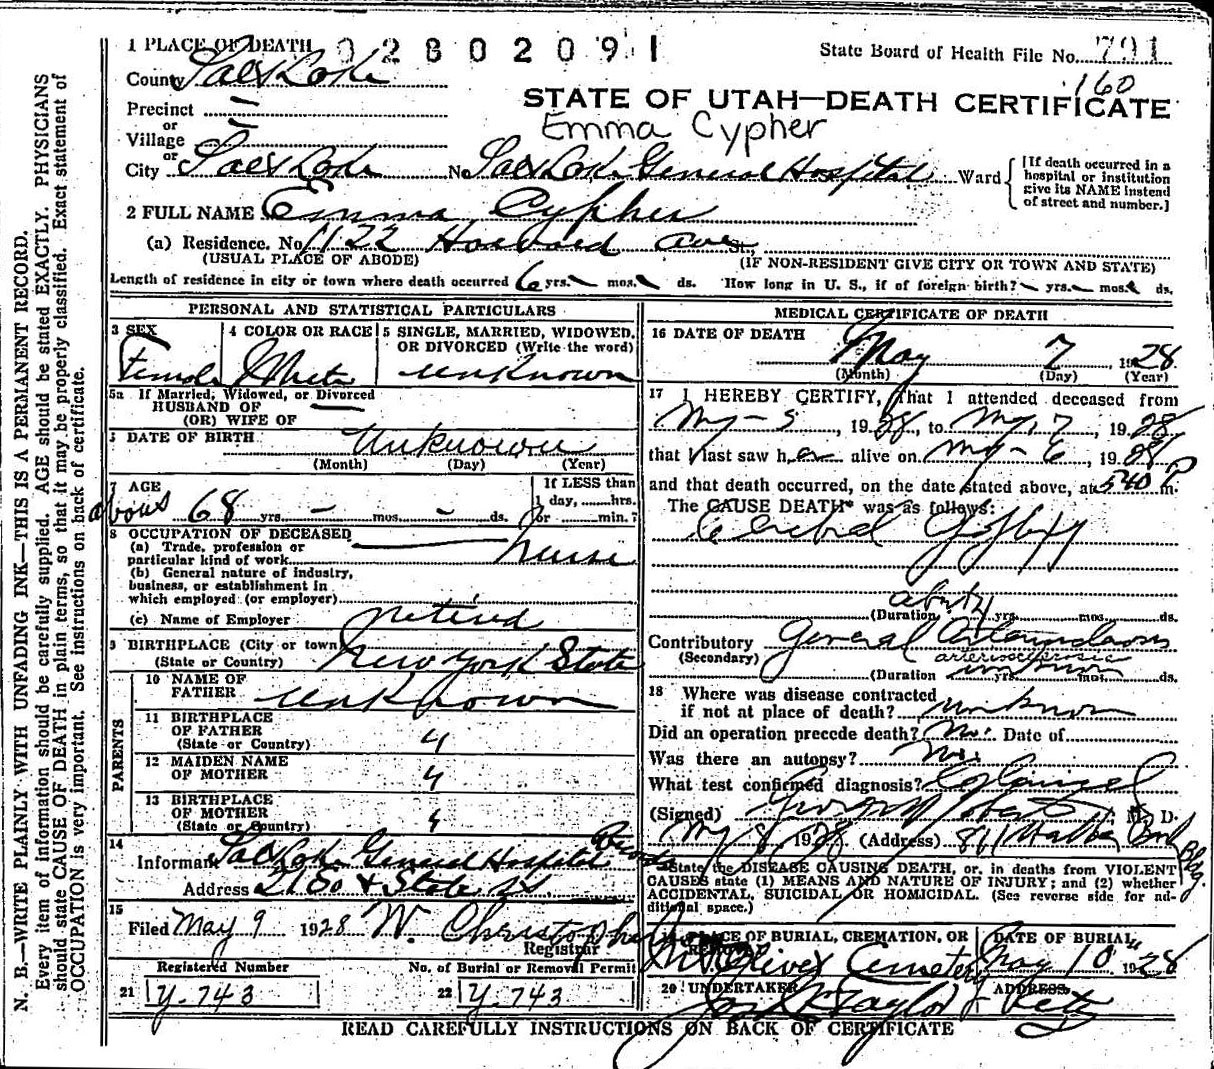 1 PLACE OF DEATH 02802091
State Board of Health File No. 791
County Salt Lake
160
Precinct —
STATE OF UTAH—DEATH CERTIFICATE
or
Village —
Emma Cypher
or
City Salt Lake No. Salt Lake General Hospital Ward
[If death occurred in a hospital or institution give its NAME instead of street and number.]
2 FULL NAME Emma Cypher
(a) Residence. No. 1122 Harvard Ave St.
(USUAL PLACE OF ABODE) (IF NON-RESIDENT GIVE CITY OR TOWN AND STATE)
Length of residence in city or town where death occurred 6 yrs. — mos. — ds. How long in U. S., if of foreign birth? — yrs. — mos. — ds.
PERSONAL AND STATISTICAL PARTICULARS
3 SEX
Female
4 COLOR OR RACE
White
5 SINGLE, MARRIED, WIDOWED, OR DIVORCED (Write the word)
unknown
5a If Married, Widowed, or Divorced
HUSBAND OF —
(OR) WIFE OF
6 DATE OF BIRTH Unknown
(Month) (Day) (Year)
7 AGE
about 68 yrs. — mos. — ds.
If LESS than
1 day, ......hrs.
or ......min.?
8 OCCUPATION OF DECEASED
(a) Trade, profession or
particular kind of work nurse
(b) General nature of industry,
business, or establishment in
which employed (or employer)
(c) Name of Employer retired
9 BIRTHPLACE (City or town)
(State or Country) New York State
PARENTS
10 NAME OF
FATHER unknown
11 BIRTHPLACE
OF FATHER "
(State or Country)
12 MAIDEN NAME
OF MOTHER "
13 BIRTHPLACE
OF MOTHER "
(State or Country)
14
Informant Salt Lake General Hospital Records
Address 21 So & State St.
15
Filed May 9 1928 W. Christopherson
Registrar
Registered Number No. of Burial or Removal Permit
21 Y-743 22 Y-743
MEDICAL CERTIFICATE OF DEATH
16 DATE OF DEATH
May 7, 1928
(Month) (Day) (Year)
17 I HEREBY CERTIFY, That I attended deceased from
My-5, 1928, to My, 7, 1928
that I last saw her alive on My-6, 1928
and that death occurred, on the date stated above, at 540 P m.
The CAUSE DEATH* was as follows:
Cerebral
(Duration) yrs. mos. ds.
Contributory General
(Secondary) arteriosclerosis
(Duration unknown yrs. mos. ds.
18 Where was disease contracted
if not at place of death? unknown
Did an operation precede death? No. Date of
Was there an autopsy? No.
What test confirmed diagnosis?
(Signed) M. D.
My 8, 1928 (Address) 861 Bldg.
*State the DISEASE CAUSING DEATH, or, in deaths from VIOLENT
CAUSES state (1) MEANS AND NATURE OF INJURY; and (2) whether
ACCIDENTAL, SUICIDAL OR HOMICIDAL. (See reverse side for ad-
ditional space.)
19 PLACE OF BURIAL, CREMATION, OR
Mt Olivet Cemetery
DATE OF BURIAL
May 10 1928
20 UNDERTAKER
Taylor
ADDRESS
City
READ CAREFULLY INSTRUCTIONS ON BACK OF CERTIFICATE
N. B.—WRITE PLAINLY WITH UNFADING INK—THIS IS A PERMANENT RECORD.
Every item of information should be carefully supplied. AGE should be stated EXACTLY. PHYSICIANS
should state CAUSE OF DEATH in plain terms, so that it may be properly classified. Exact statement of
OCCUPATION is very important. See instructions on back of certificate.